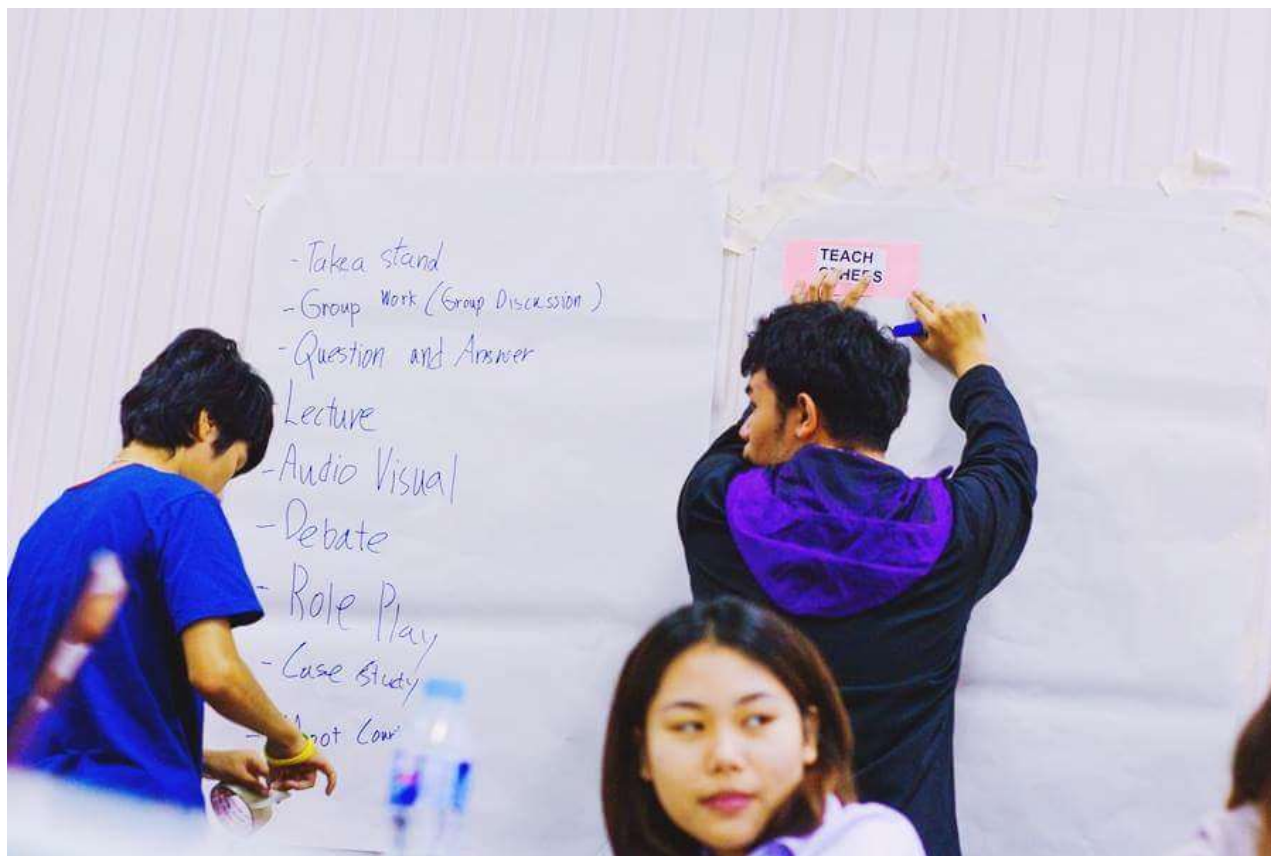 - Take a stand
- Group Work (Group Discussion)
- Question and Answer
Lecture
- Audio Visual
- Debate
- Role Play
- Case study
TEACH
OTHERS